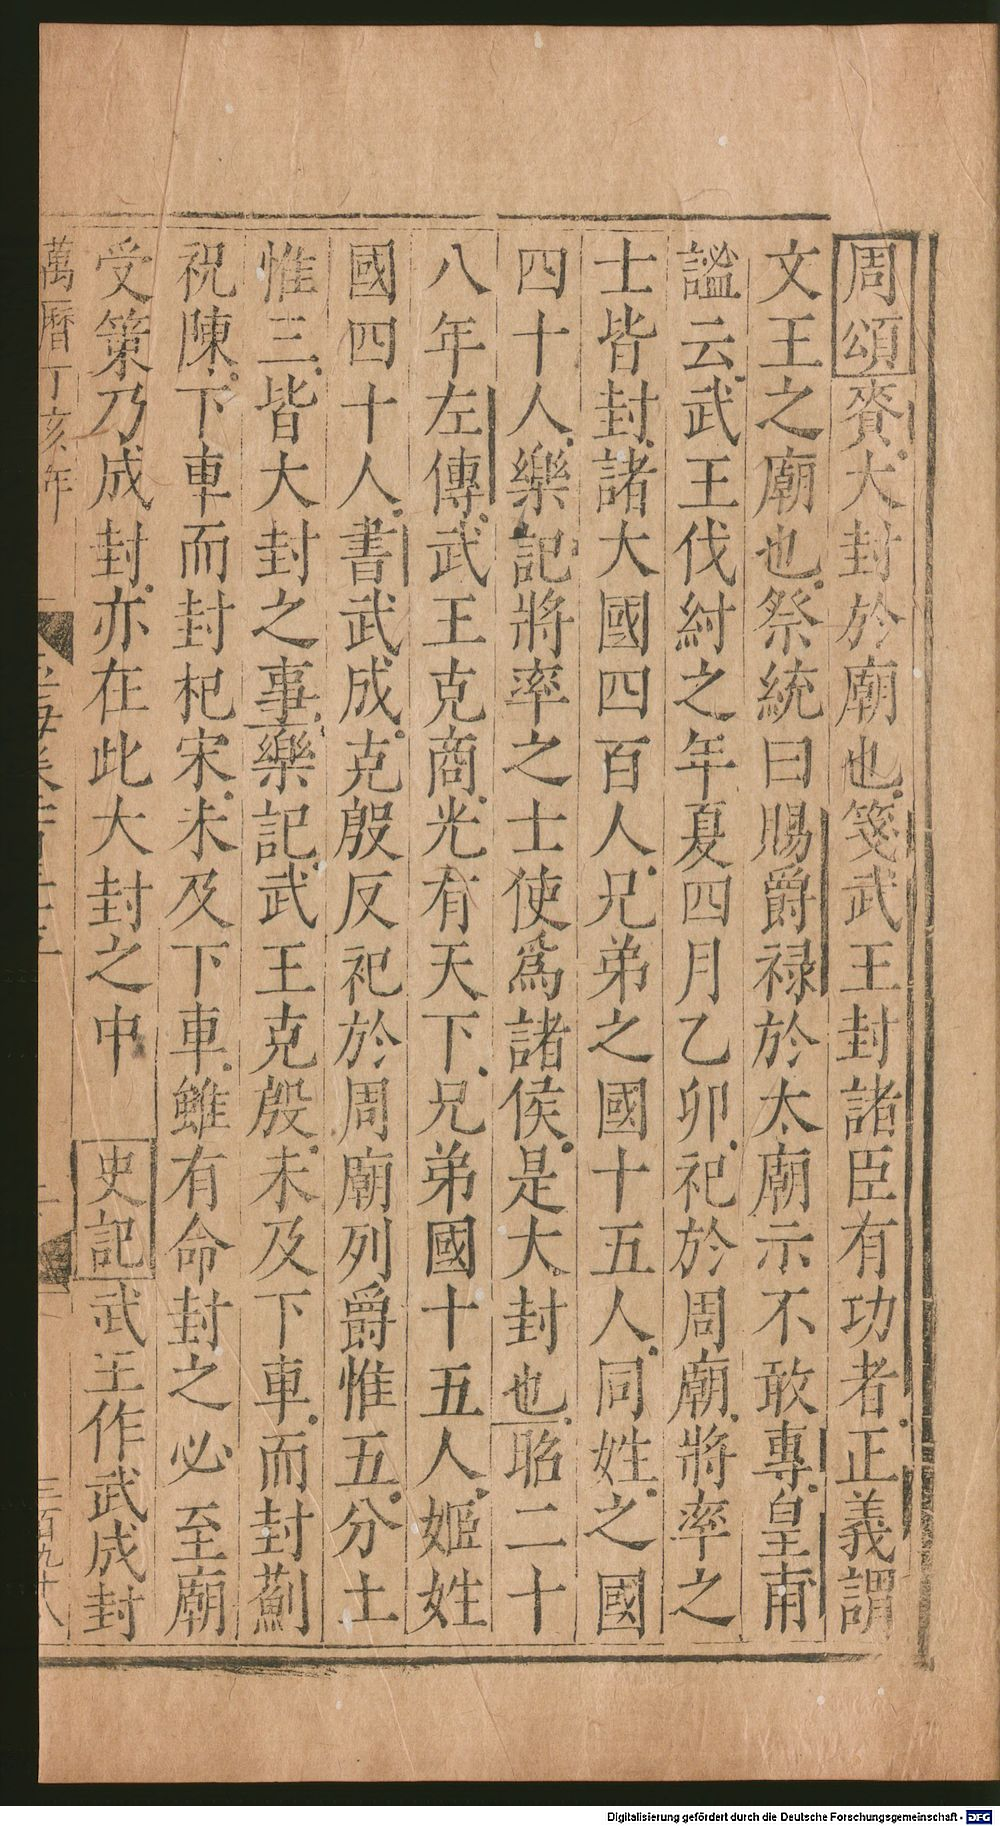 周頌賚大封於廟也箋武王封諸臣有功者正義謂
文王之廟也祭統曰賜爵禄於太廟示不敢專皇甫
謐云武王伐紂之年夏四月乙卯祀於周廟將率之
士皆封諸大國四百人兄弟之國十五人同姓之國
四十人樂記將率之士使為諸侯是大封也昭二十
八年左傳武王克商光有天下兄弟國十五人姬姓
國四十人書武成克殷反祀於周廟列爵惟五分土
惟三皆大封之事樂記武王克殷未及下車而封薊
祝陳下車而封杞宋未及下車雖有命封之必至廟
受策乃成封亦在此大封之中 史記武王作武成封
萬曆丁亥年 二 三百九十八
Digitalisierung gefördert durch die Deutsche Forschungsgemeinschaft - DFG